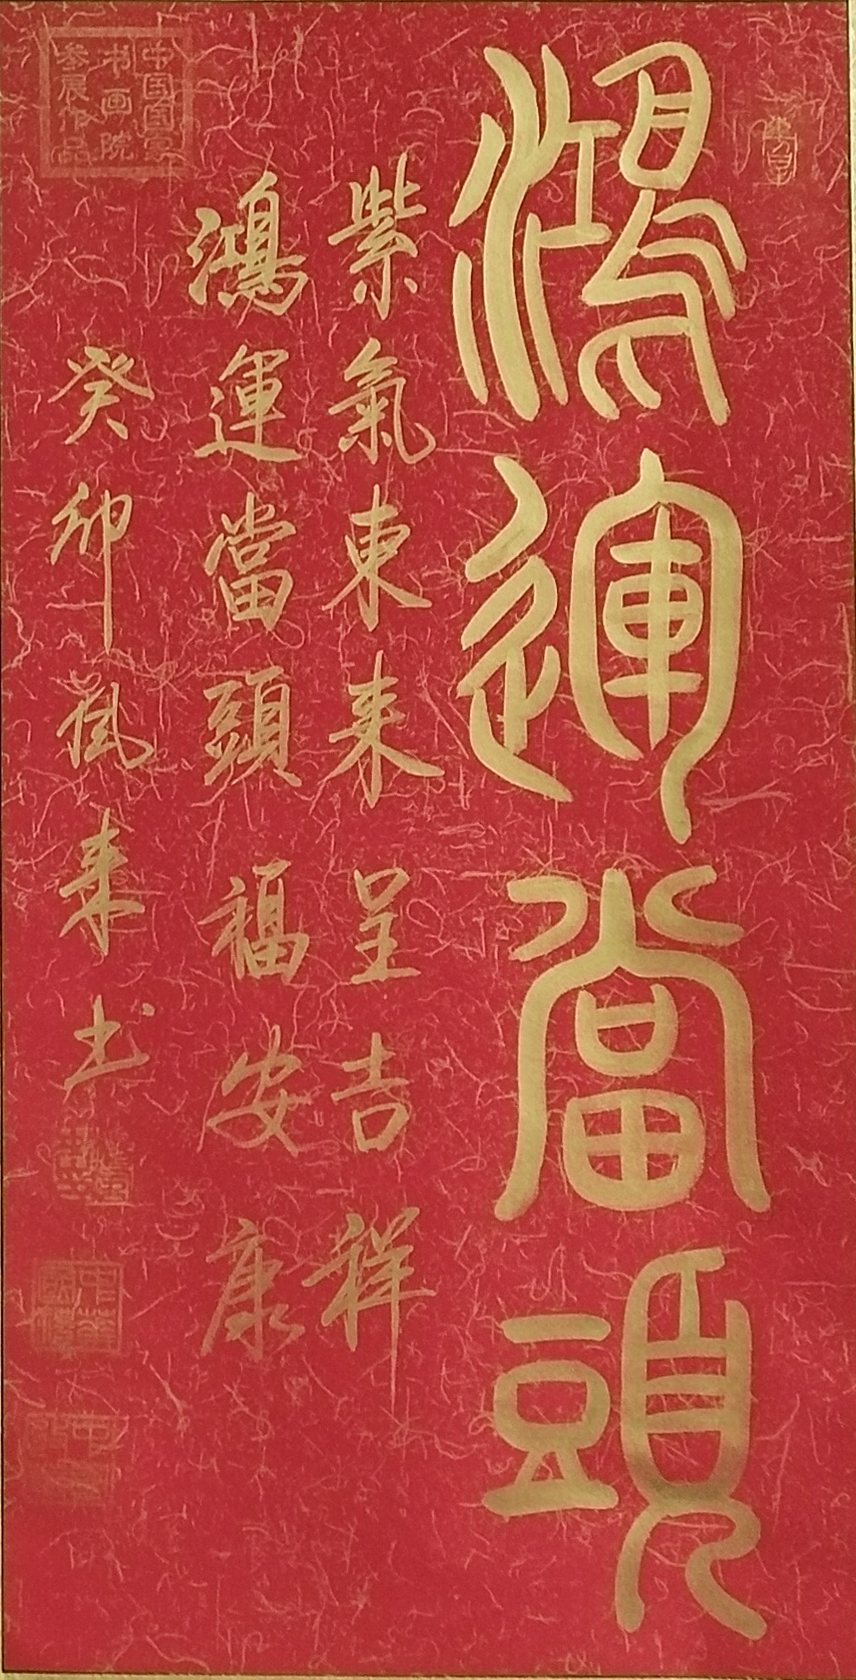 鴻運當頭
紫氣東来呈吉祥
鴻運當頭福安康
癸卯楓来书
中国国宾
书画院
参展作品